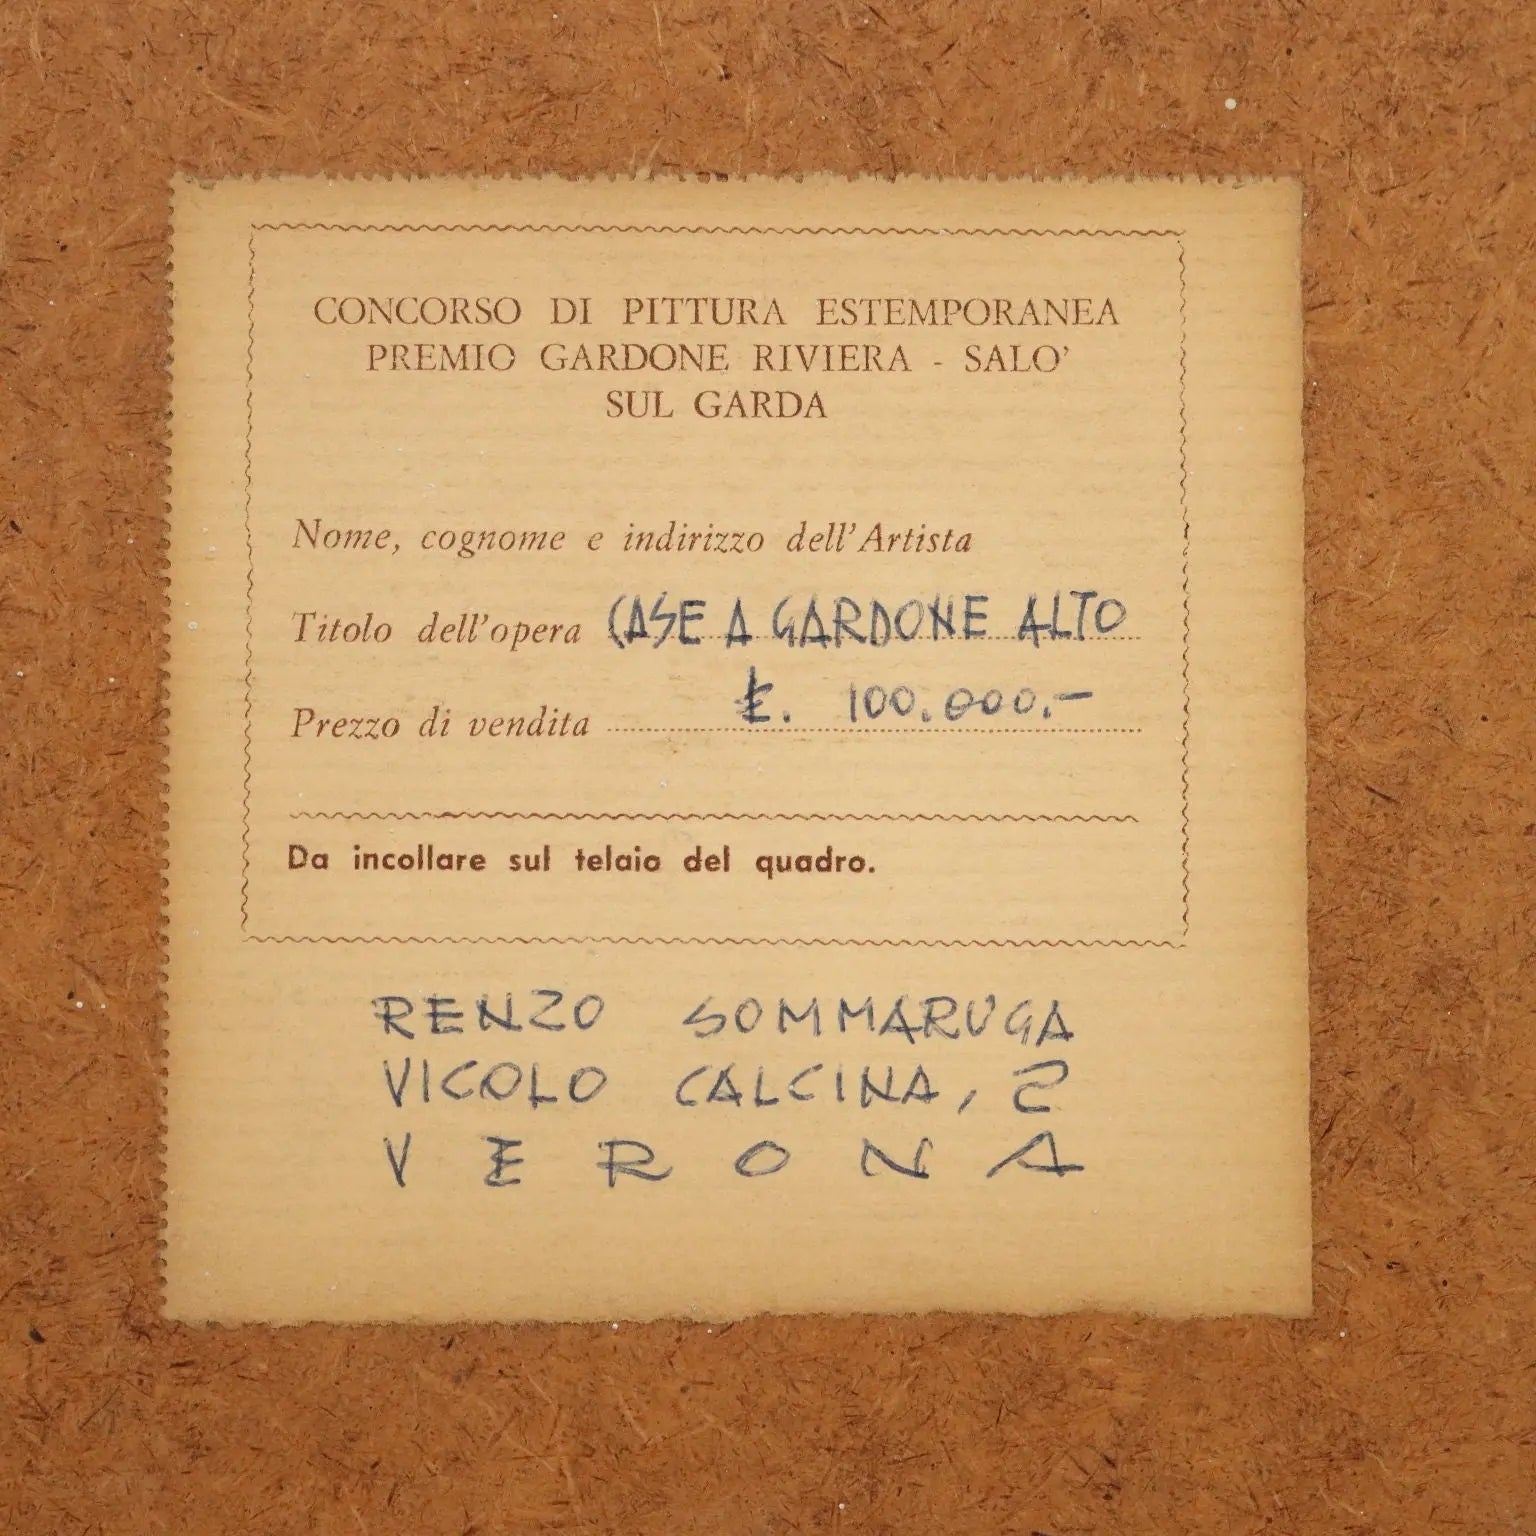 CONCORSO DI PITTURA ESTEMPORANEA
PREMIO GARDONE RIVIERA - SALO'
SUL GARDA
Nome, cognome e indirizzo dell'Artista
Titolo dell'opera CASE A GARDONE ALTO
Prezzo di vendita £. 100.000.-
Da incollare sul telaio del quadro.
RENZO SOMMARUGA
VICOLO CALCINA, 2
VERONA